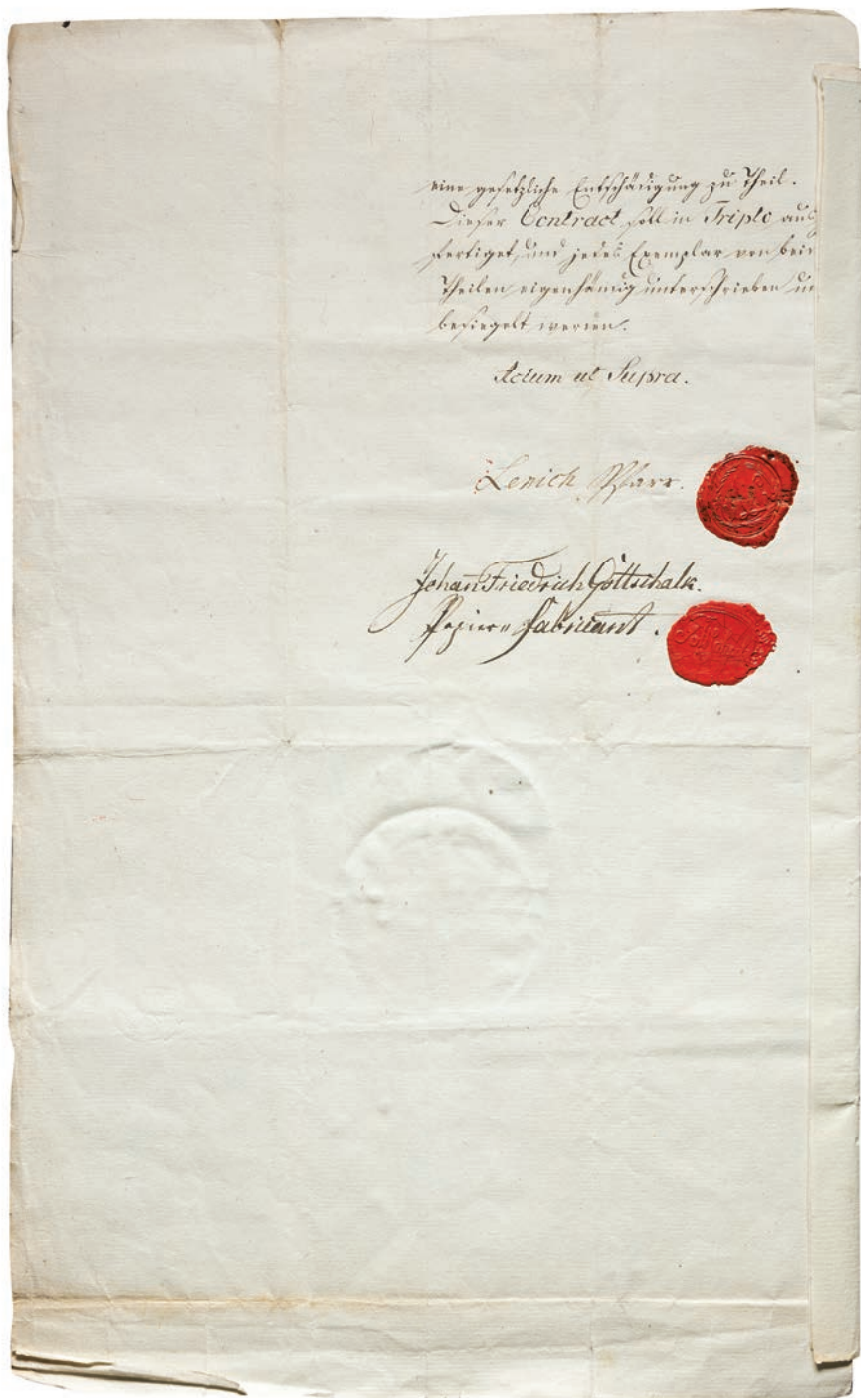 eine gesetzliche Entschädigung zu Theil.
Dieser Contract soll in Triplo aus
fertiget, und jedes Exemplar von beid
Theilen eigenhändig unterschrieben un
besiegelt werden.
Actum ut Supra.
Lenich Pfarr.
Johan Friedrich Gottschalk.
Papier Fabricant.